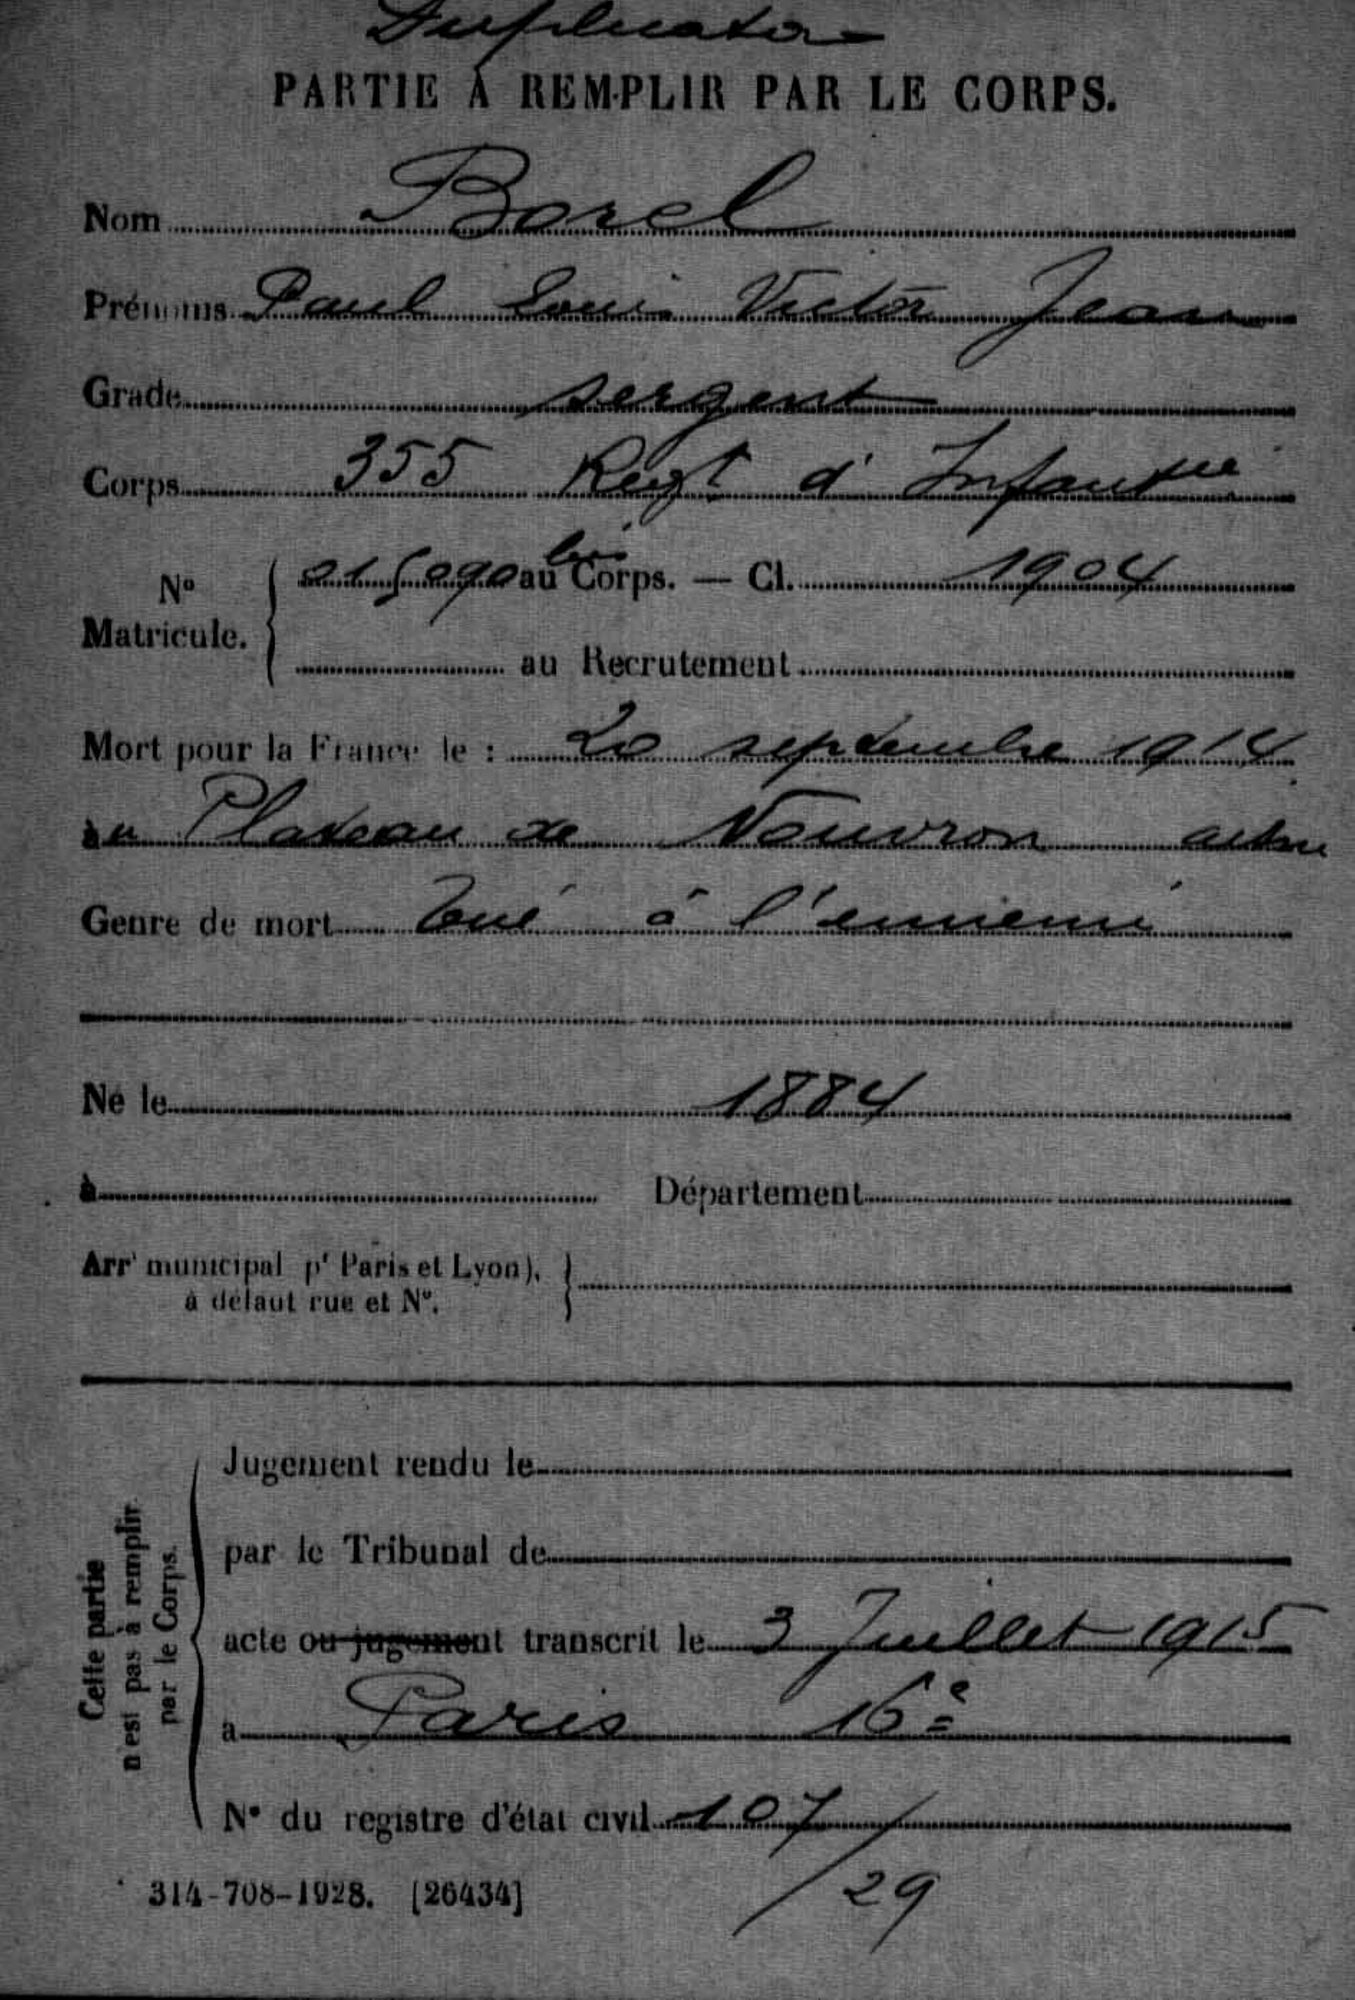 Duplicata
PARTIE À REMPLIR PAR LE CORPS.
Nom Borel
Prénoms Paul Louis Victor Jean
Grade sergent
Corps 355 Regt d'Infanterie
N° Matricule. 015090 bis au Corps. — Cl. 1904
au Recrutement
Mort pour la France le : 20 septembre 1914
au Plateau de Nouvron aisne
Genre de mort Tué à l'ennemi
Né le 1884
à Département
Arrt municipal pr Paris et Lyon),
à défaut rue et N°.
Jugement rendu le
par le Tribunal de
acte ou jugement transcrit le 3 Juillet 1915
à Paris 16e
N° du registre d'état civil 107/29
Cette partie
n'est pas à remplir
par le Corps.
314-708-1928. [26434]